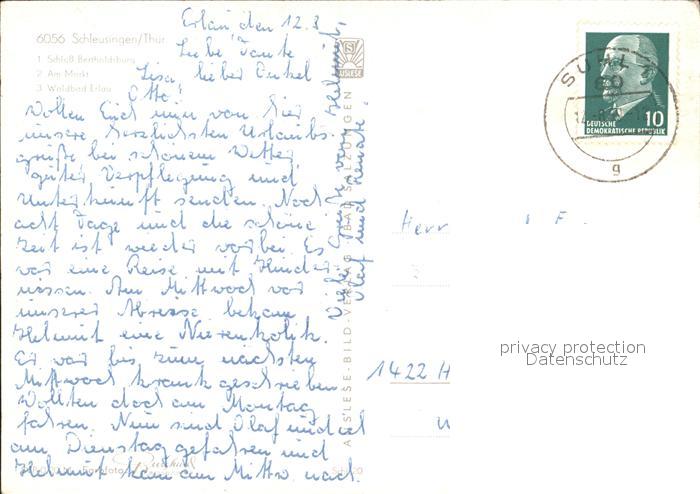 Erlau den 12.8
Liebe Tante
Lisa, lieber Onkel
Otto!
Wollen Euch nun von hier
unsere herzlichsten Urlaubs-
grüße bei schönem Wetter,
guter Verpflegung und
Unterkunft senden. Noch
acht Tage und die schöne
Zeit ist wieder vorbei. Es
war eine Reise mit Hinder-
nissen. Am Mittwoch vor
unserer Abreise bekam
Helmut eine Nierenkolik.
Er war bis zum nächsten
Mittwoch krank geschrieben
Wollten doch am Montag
fahren. Nun sind Olaf und ich
am Dienstag gefahren und
Helmut kam am Mittw. nach.
Viele Grüße von Helmut,
Olaf und Renate.
6056 Schleusingen/Thür.
1 Schloß Bertholdsburg
2 Am Markt
3 Waldbad Erlau
AUSLESE
AUSLESE-BILD-VERLAG BAD SALZUNGEN
SUHL 1
g
10
DEUTSCHE
DEMOKRATISCHE REPUBLIK
Herr
1422 H
privacy protection
Datenschutz